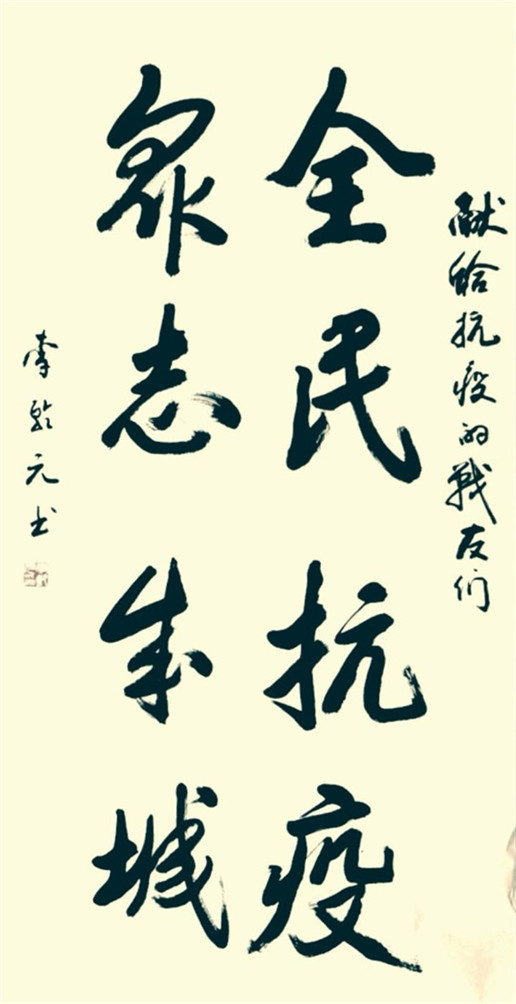 献给抗疫的战友们
全民抗疫
众志成城
李乾元书